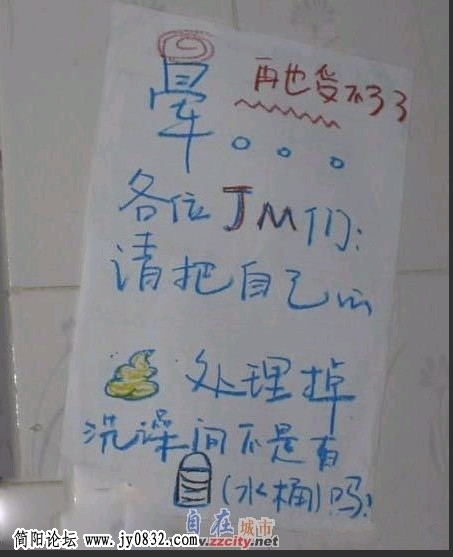 晕。。。 再也受不了了
各位JM们:
请把自己的
处理掉
洗澡间不是有
(水桶)吗!
自在城市
www.zzcity.net
简阳论坛 www.jy0832.com